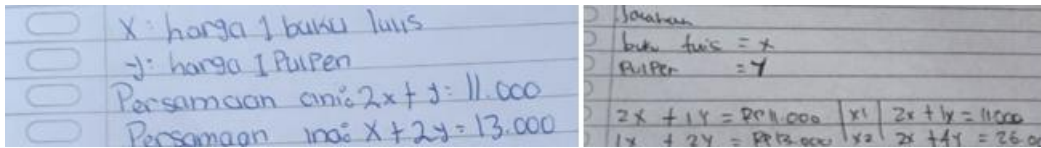 X: harga 1 buku tulis
y: harga 1 Pulpen
Persamaan ani: 2x + y = 11.000
Persamaan ina: x + 2y = 13.000
Jawaban
buku tulis = x
Pulpen = y
2x + 1y = Rp11.000 |x1| 2x + 1y = 11000
1x + 2y = Rp13.000 |x2| 2x + 4y = 26.0